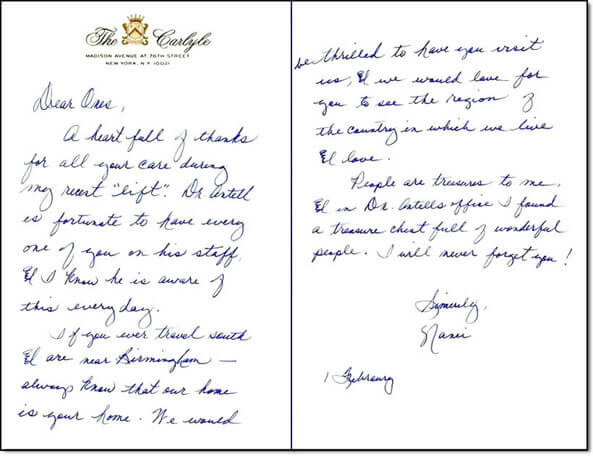 The Carlyle
MADISON AVENUE AT 76TH STREET
NEW YORK, N.Y. 10021
Dear Ones,
A heart full of thanks
for all your care during
my recent "lift". Dr. Antell
is fortunate to have every
one of you on his staff,
& I know he is aware of
this every day.
If you ever travel south
& are near Birmingham —
always know that our home
is your home. We would
be thrilled to have you visit
us, & we would love for
you to see the region of
the country in which we live
& love.
People are treasures to me,
& in Dr. Antells office I found
a treasure chest full of wonderful
people. I will never forget you!
Sincerely,
1 February